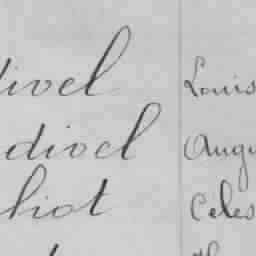 divel Louis
divel Augu
hiot Celes